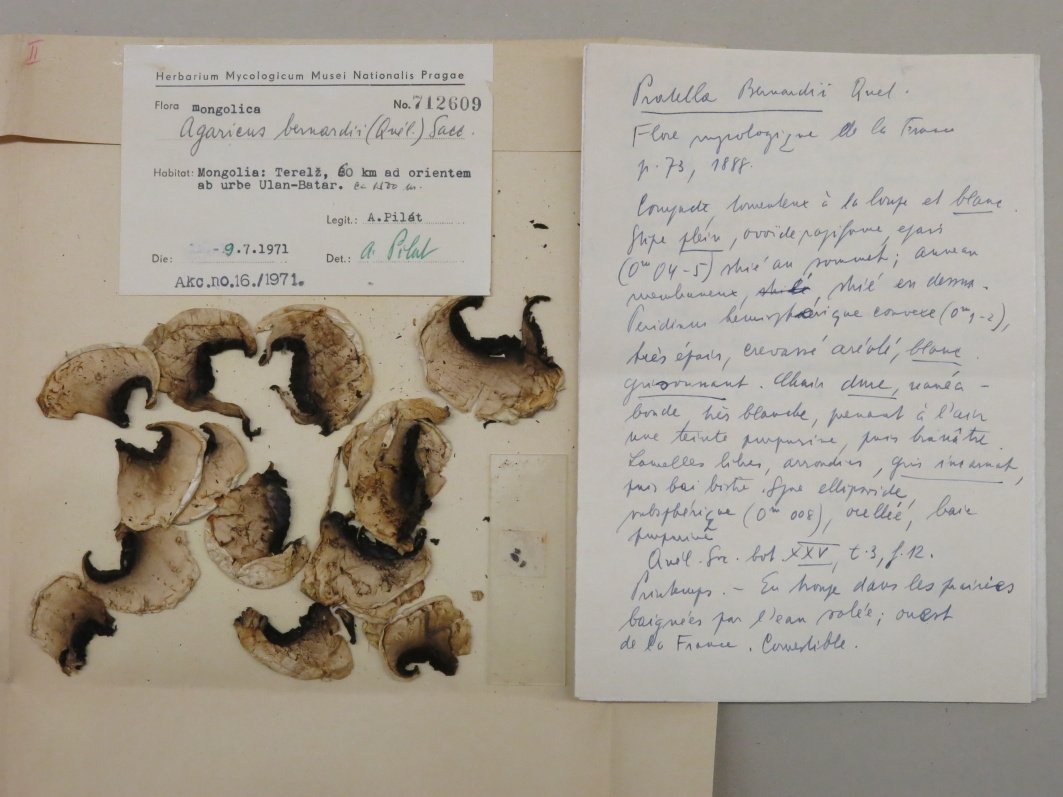 II
Herbarium Mycologicum Musei Nationalis Pragae
Flora mongolica No. 712609
Agaricus bernardii (Quél.) Sacc.
Habitat: Mongolia: Terelž, 60 km ad orientem
ab urbe Ulan-Batar. ca 1500 m.
Legit.: A.Pilát
Die: -9.7.1971 Det.: A. Pilát
Akc.no.16./1971.
Pratella Bernardii Quel.
Flore mycologique de la France
p. 73, 1888.
Compacte, tomenteux à la loupe et blanc.
Stipe plein, ovoide radiforme, épais
(0m 04-5) strié au sommet; anneau
membraneux, strié en dessus.
Peridium hemispherique convexe (0m,1-2),
très épais, crevassé aréolé, blanc
grisonnant. Chair dure,
bonde, très blanche, prenant à l'air
une teinte purpurine, puis brunâtre.
Lamelles libres, arrondies, gris incarnat,
puis bai bistre. Spore ellipsoide,
subsphérique (0m 008), ocellée, baie
purpurine
Quél. Soc. bot. XXV, t.3, f.12.
Printemps. - En troupe dans les prairies
baignées par l'eau salée; ouest
de la France. Comestible.